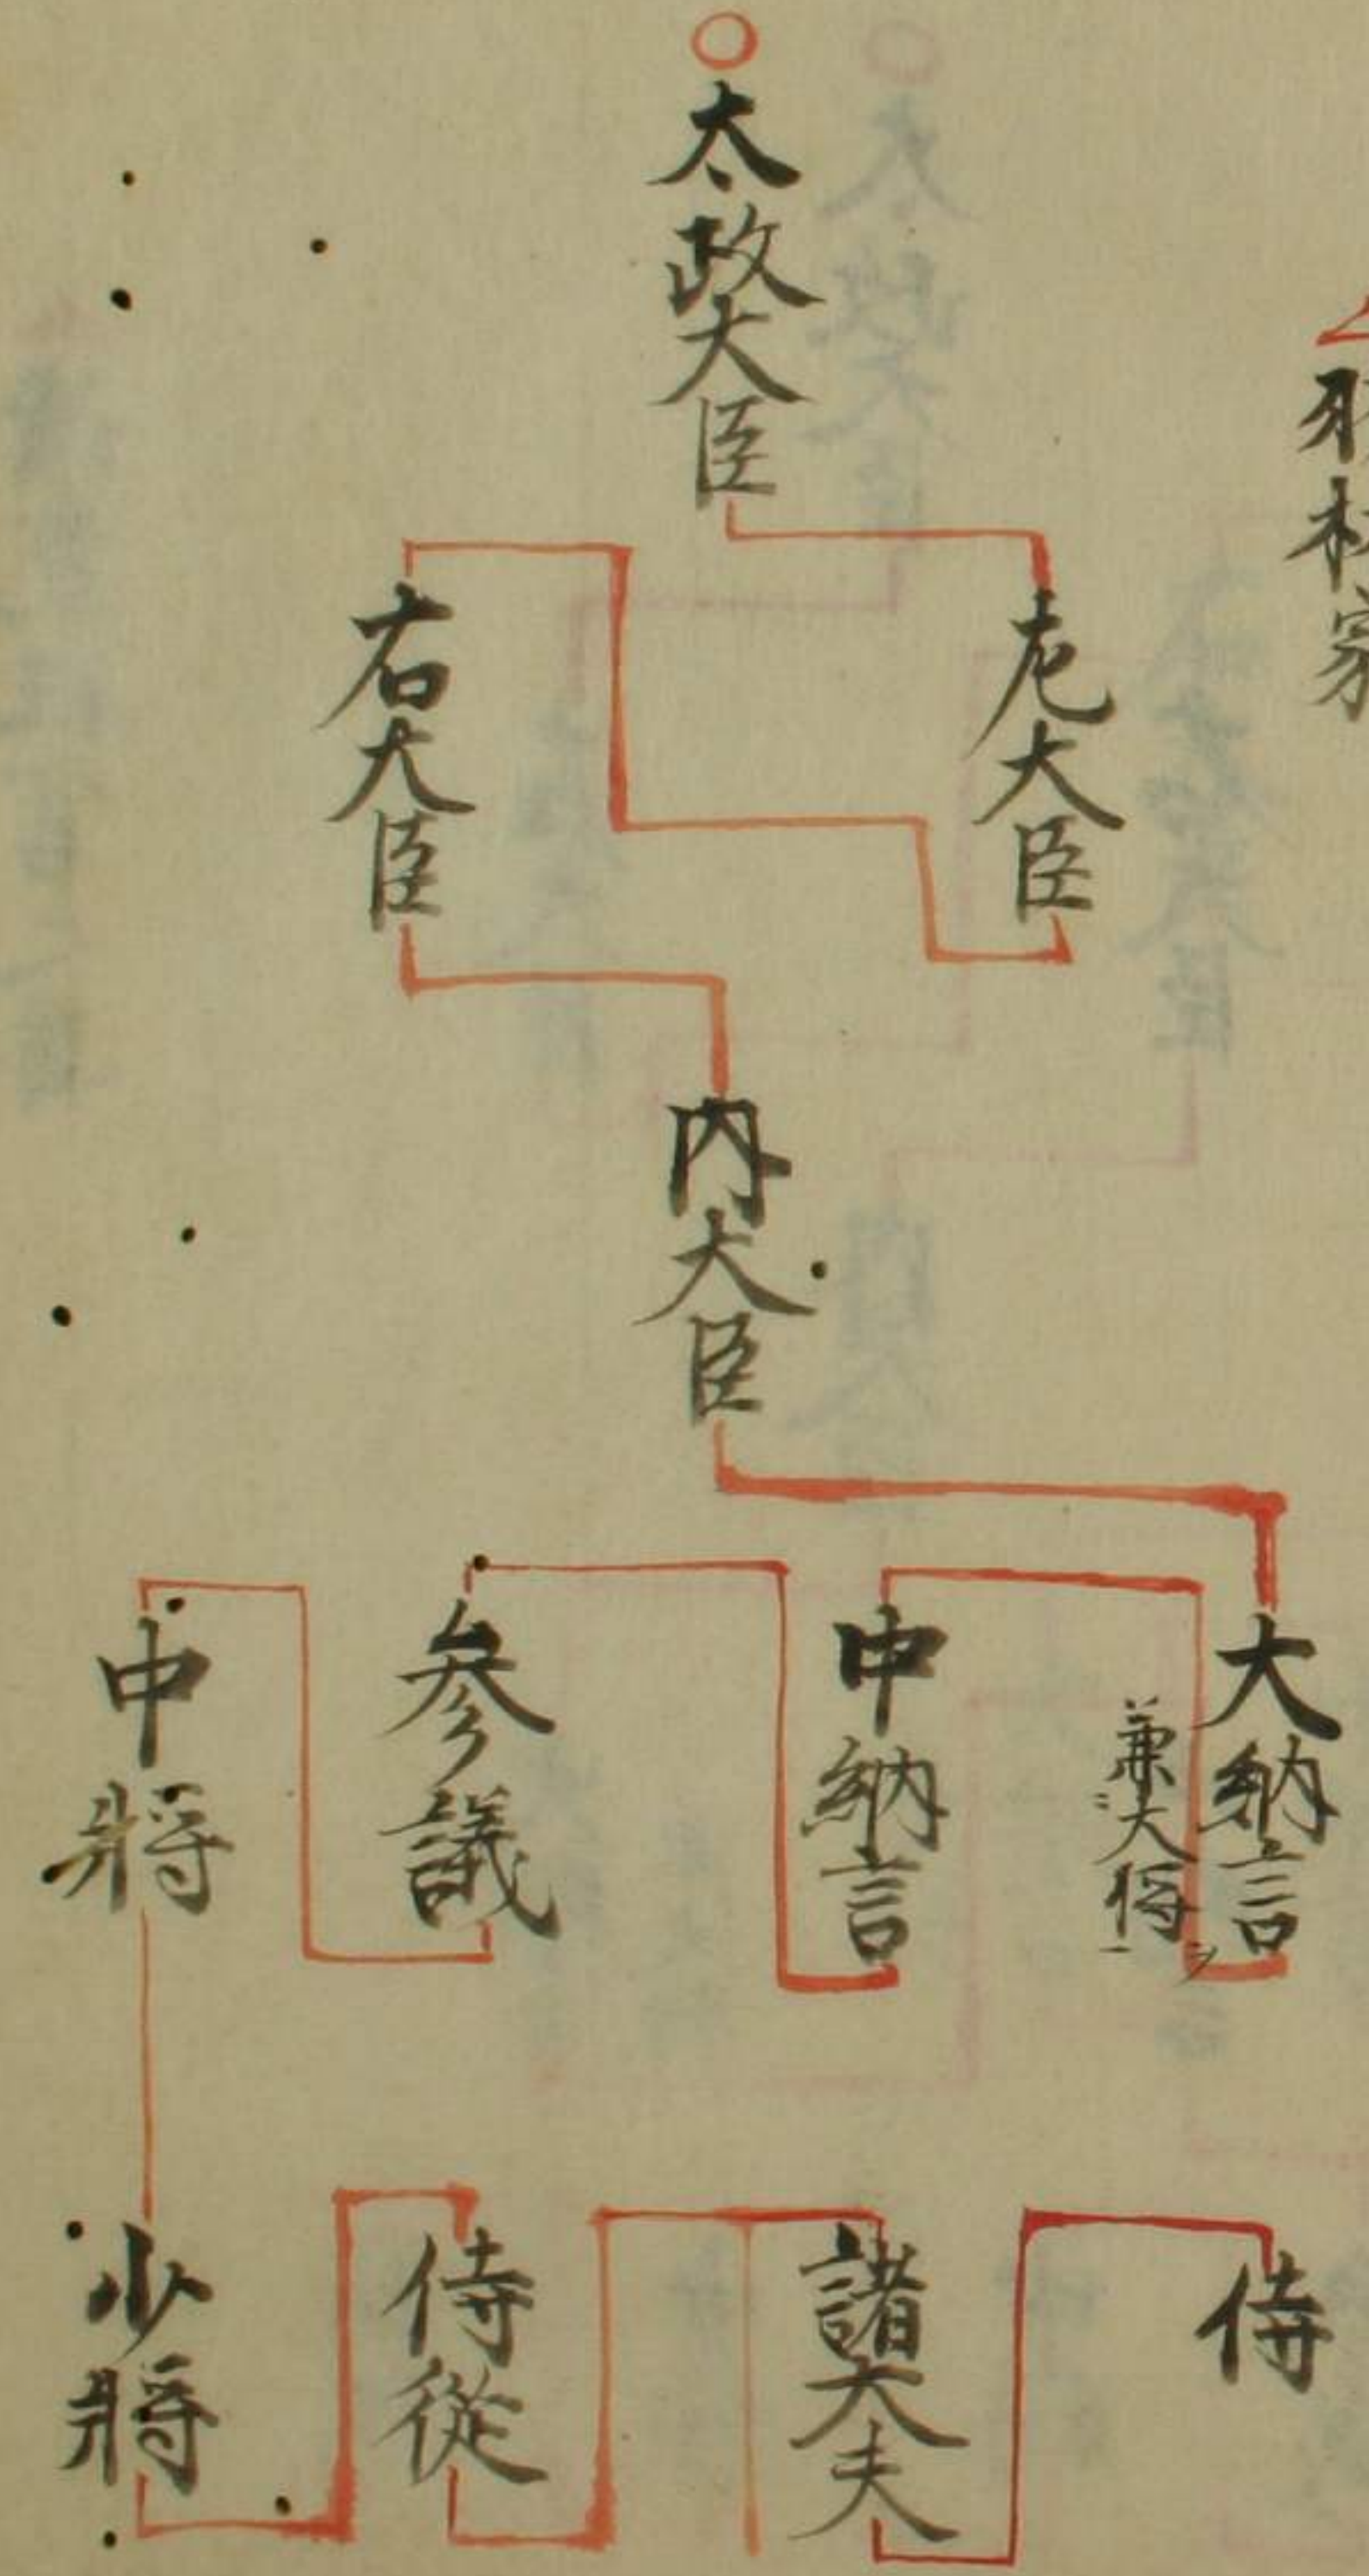 羽林家
太政大臣
左大臣
右大臣
内大臣
大納言
兼大将
中納言
参議
中將
少將
侍從
諸大夫
侍